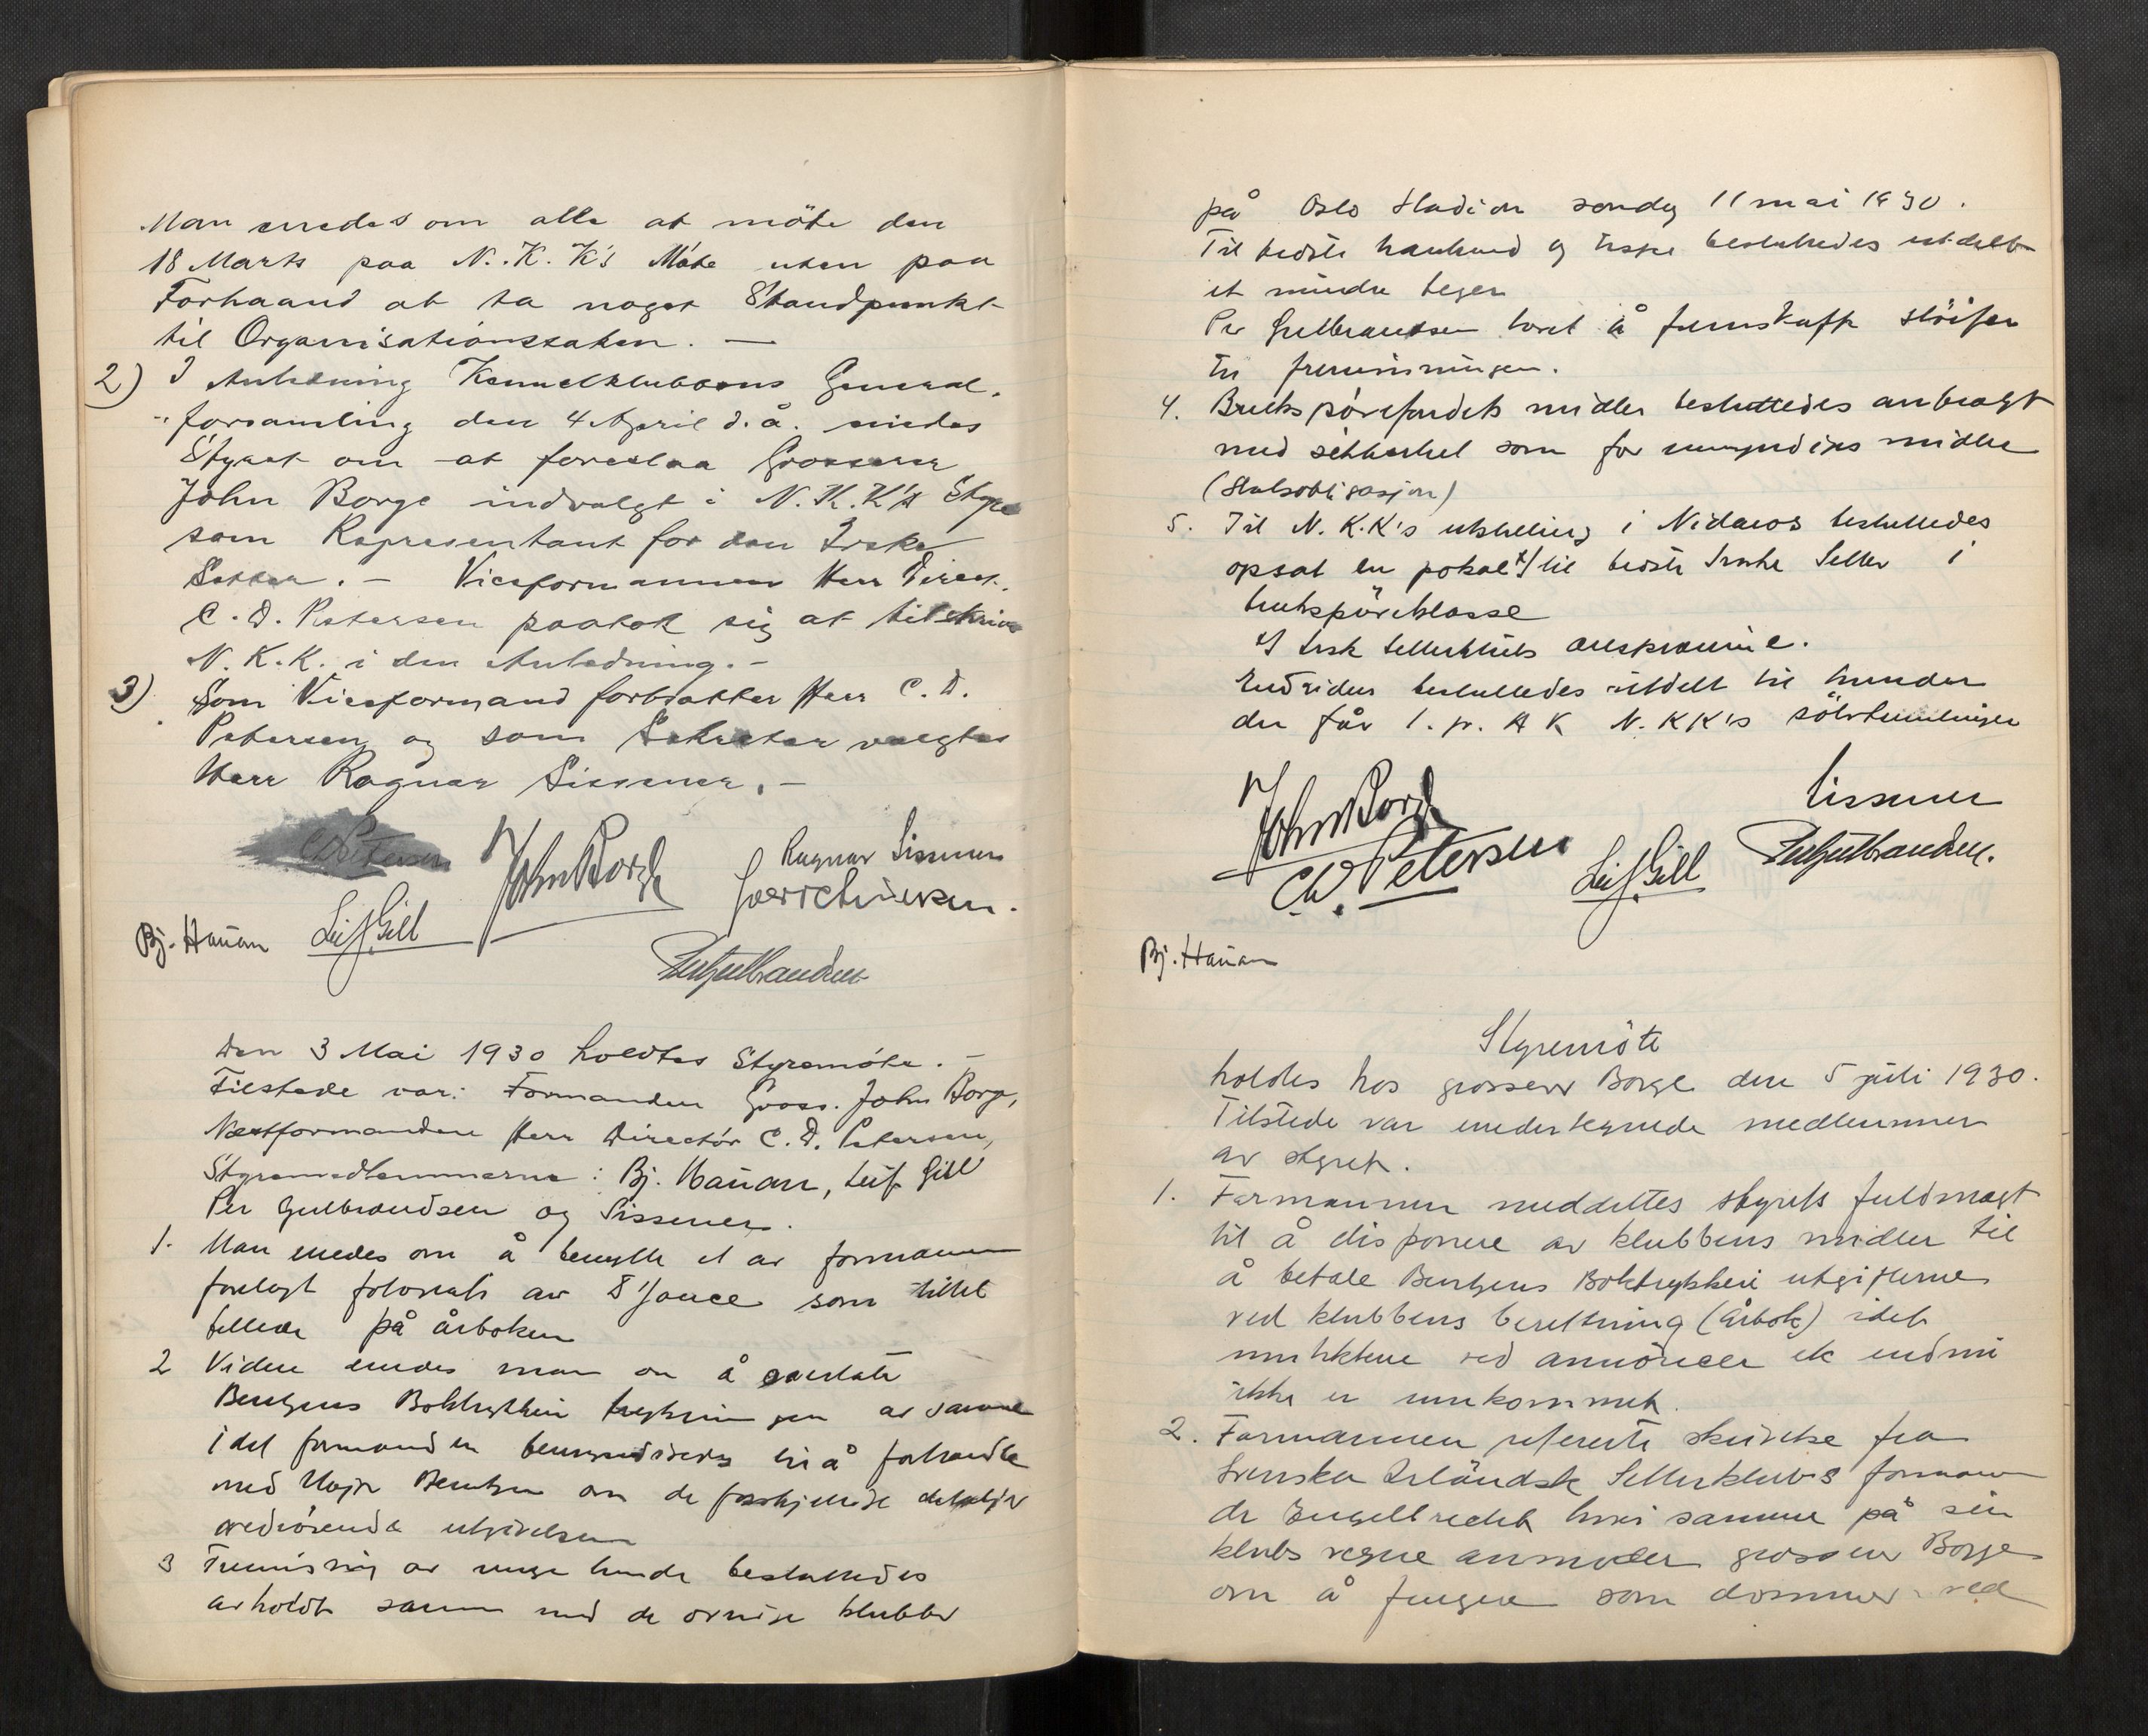 Man enedes om alle at möte den
18 Marts paa N.K.K's Möte uten paa
Forhaand at ta noget Standpunkt
til Organisationssaken. —
2) I Anledning Kennelklubbens General-
forsamling den 4 April d.å. enedes
Styret om at foreslaa Grosserer
John Borge indvalgt i N.K.K's Styre
som Representant for den Irske
Setter. – Viceformannen Herr Direct.
C.D. Petersen paatok sig at tilskrive
N.K.K. i den Anledning. –
3) Som Viceformand fortsatter Herr C.D.
Petersen og som Sekretær valgtes
Herr Ragnar Sissener. –
CD Petersen John Borge Ragnar Sissener
Bj. Hauan Leif Gill
Per Gulbrandsen
Den 3 Mai 1930 holdtes Styremöte. –
Tilstede var: Formanden Gross. John Borge,
Næstformanden Herr Directör C.D. Petersen,
Styremedlemmerne: Bj. Hauan, Leif Gill
Per Gulbrandsen og Sissener.
1. Man enedes om å benytte et av formannen
forelagt fotografi av som tittel
på årboken
2 Videre enedes man om å overlate
Bentzens Boktrykkeri trykningen av samme
idet formanden bemyndiges til å forhandle
med Bentzen om de forskjellige detaljer
vedrörende utgivelsen
3 Fremvisning av unge hunde besluttedes
avholdt sammen med de övrige klubber
på Oslo Stadion söndag 11 mai 1930.
Til bedste hanhund og tispe besluttedes utdelt
et mindre beger
Per Gulbrandsen lovet å fremskaffe slöifer
til fremvisningen.
4. Bruksprövefondets midler besluttedes anbragt
med sikkerhet som for umyndiges midler
(Statsobligasjon)
5. Til N.K.K's utstilling i Nidaros besluttedes
opsat en pokal x) til bedste Irske Setter i
brukspröveklasse
x) Irsk Setterklubs ærespræmie.
Endvidere besluttedes utdelt til hunder
der får 1. pr. A K N.KK's sölvtumlinger
John Borge Sissener
CD. Petersen Leif Gill Per Gulbrandsen.
Bj. Hauan
Styremöte
holdtes hos grosserer Borge den 5 juli 1930.
Tilstede var undertegnede medlemmer
av styret.
1. Formannen meddeltes styrets fuldmagt
til å disponere av klubbens midler til
å betale Bentzens Boktrykkeri utgifterne
ved klubbens beretning (årbok) idet
inntektene ved annoncer etc endnu
ikke er innkommet.
2. Formannen refererte skrivelse fra
Svenska Irländsk Setterklubs formann
dr Engelbrecht hvori samme på sin
klubs vegne anmoder grosserer Borge
om å fungere som dommer ved